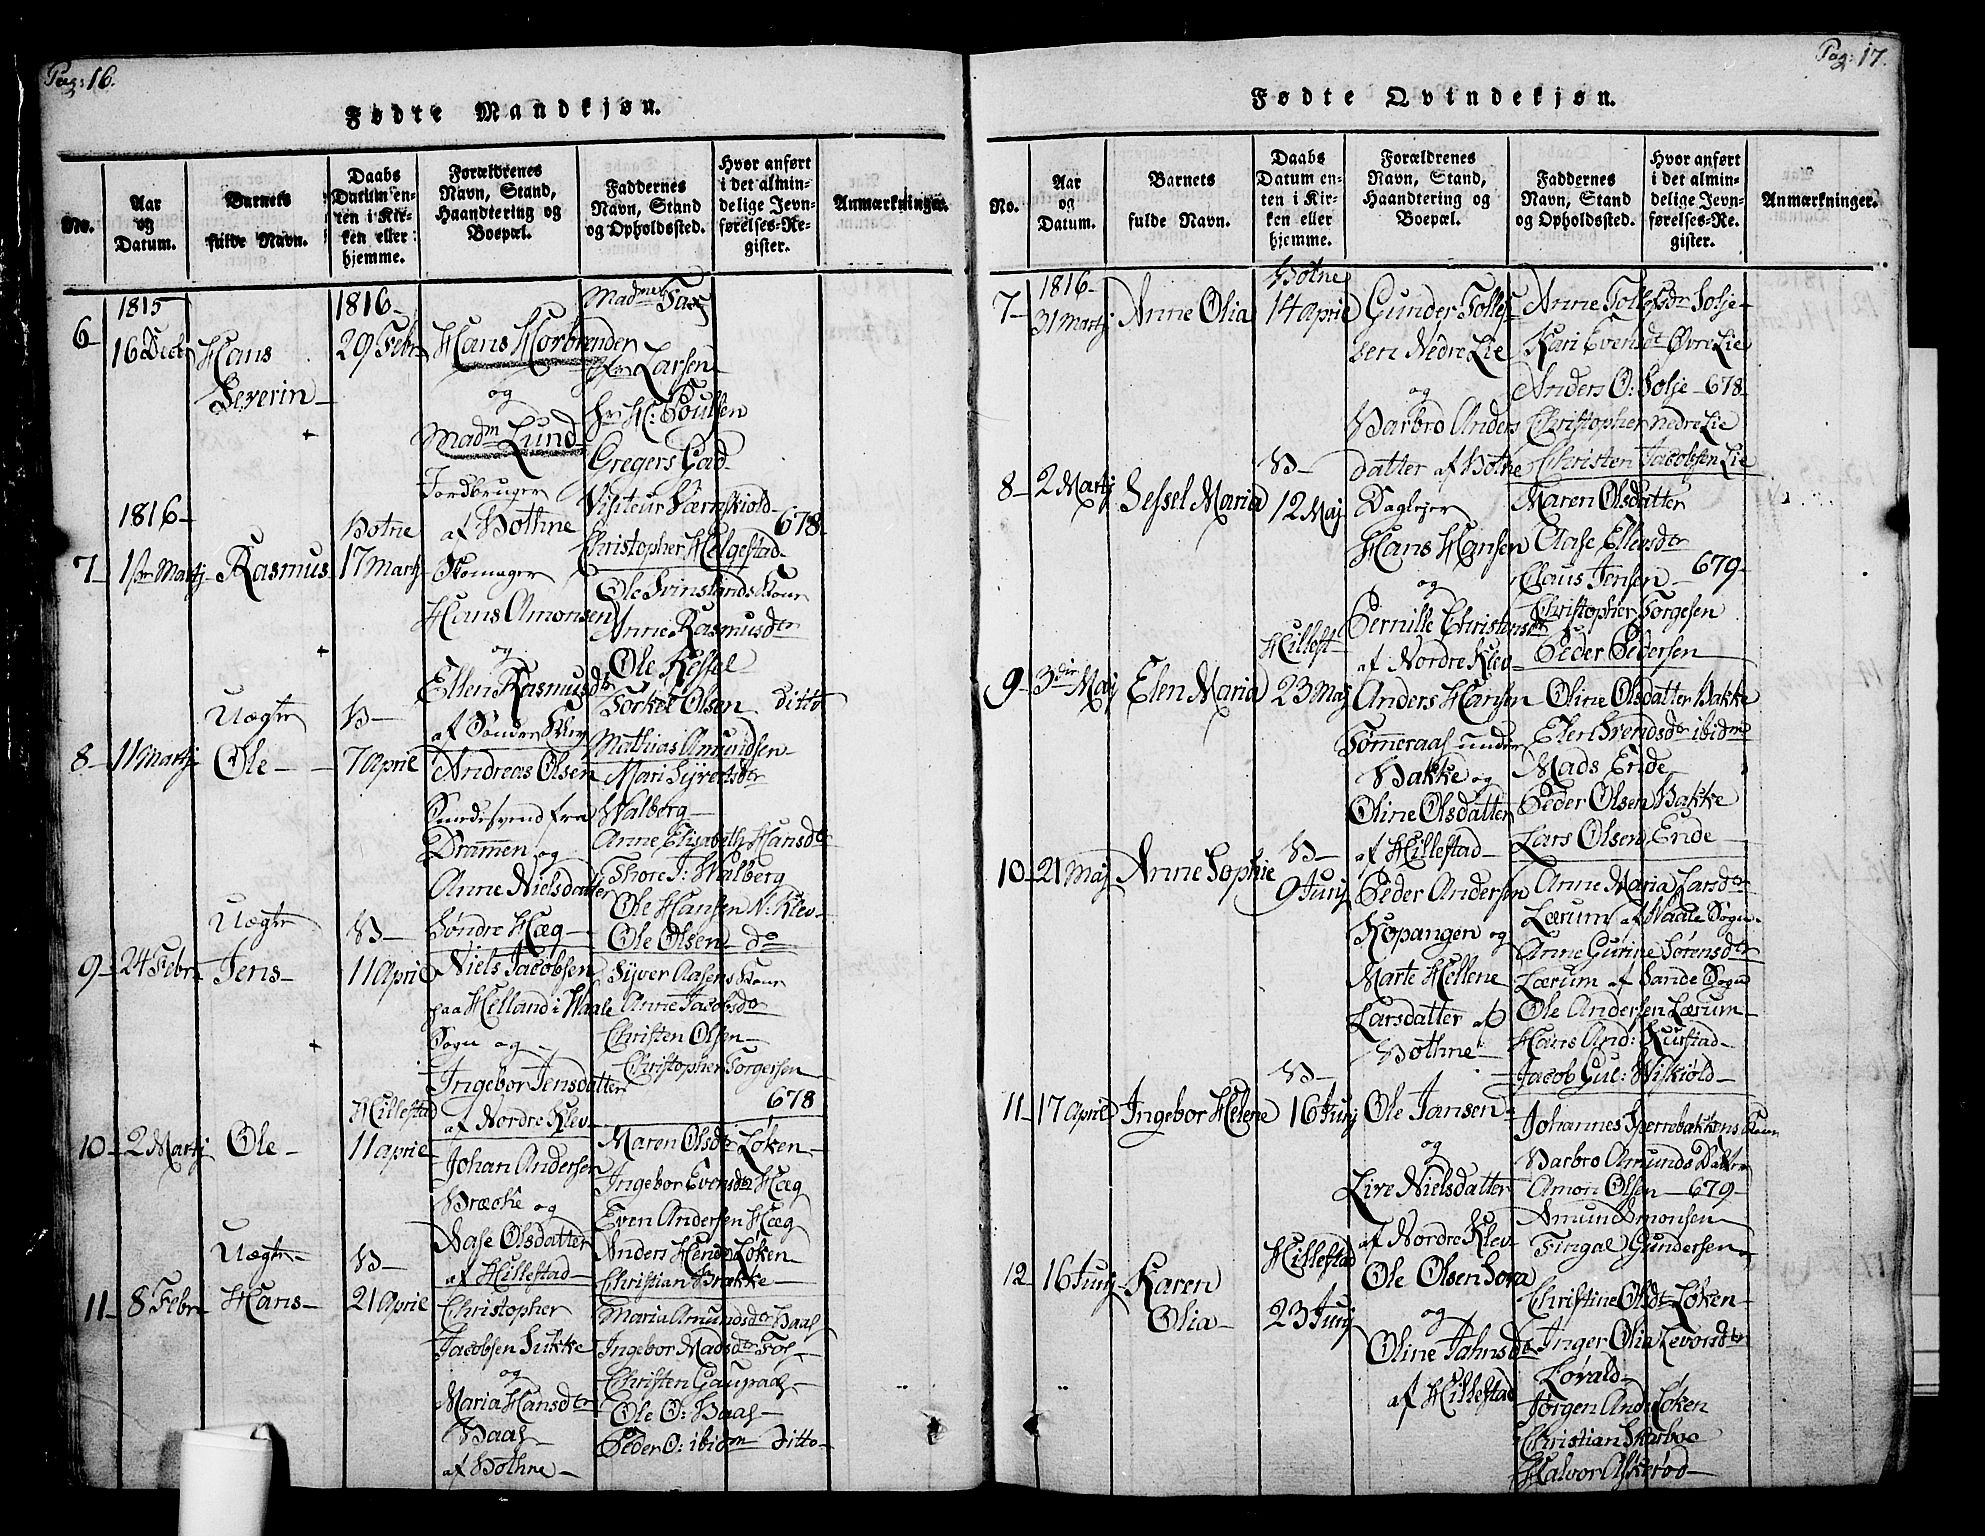 Pag: 16.
Fødte Mandkjøn.
No.
Aar og Datum.
Barnets fulde Navn.
Daabs Datum enten i Kirken eller hjemme.
Forældrenes Navn, Stand, Haandtering og Boepæl.
Faddernes Navn, Stand og Opholdssted.
Hvor anført i det almindelige Jevnførelses-Register.
Anmærkninger.
6
1815
16 Decbr
Hans
Severin
1816
29 Febr
Hans Horbrender
og
Madm Lund
Jordbruger
af Bothne
Larsen
Hr H: Poulsen
Gregers Gad
Visiteur
Christopher Helgestad
678
1816
7
1ste Martj
Rasmus
Botne
17 Martj
Skomager
Hans Amonsen
og
Ellen Rasmusdtr
af Søndre Klev
Ole Svinslands Kone
Anne Rasmusdtr
Ole Kessel
Torkel Olsen
Mathias Amundsen
ditto
8
11 Martj
Uægte
Ole
B
7 Aprie
Andreas Olsen
Smedesvend fra
Drammen og
Anne Nielsdatter
Søndre Hæg
Mari Syvertsdtr
Walberg
Anne Elisabeth Hansdtr
Thore J: Walberg
Ole Hansen N. Klev
Ole Olsen do
9
24 Febr
Uægte
Jens
B
11 Aprie
Niels Jacobsen
paa Helland i Waale
Sogn og
Ingebor Jensdatter
af Nordre Klev
Syver Aasens Kone
Anne Jacobsdtr
Christen Olsen
Christopher Torgersen
678
10
2 Martj
Ole
Hillestad
11 Aprie
Johan Andersen
Bræche og
Aase Olsdatter
af Hillestad
Maren Olsdtr Løken
Ingebor Evensdtr Hæg
Even Andersen Hæg
Anders Henr: Løken
Christian Brække
11
8 Febr
Uægte
Hans
B
21 Aprie
Christopher
Jacobsen Sukke
og
Maria Hansdtr
Haas
af Bothne
Maria Amundsdtr Haas
Ingebor Madsdtr Fos
Christen Gaupaas
Ole O: Haas
Peder O: ibidm
Ditto
Pag: 17.
Fødte Qvindekjøn.
No.
Aar og Datum.
Barnets fulde Navn.
Daabs Datum enten i Kirken eller hjemme.
Forældrenes Navn, Stand, Haandtering og Boepæl.
Faddernes Navn, Stand og Opholdssted.
Hvor anført i det almindelige Jevnførelses-Register.
Anmærkninger.
7
1816
31 Martj
Anne Olia
Botne
14 Aprie
Gunder Tollefsen
Nedre Lie
og
Barbro Andersdatter
af Botne
Anne Tollefsdr Solje
Kari Evensdt Øvre Lie
Anders O: Solje
678
Christopher nedre Lie
Christen Jacobsen Lie
8
2 Martj
Sessel Maria
B
12 Maj
Daglejer
Hans Hansen
og
Pernille Christensdtr
af Nordre Klev
Maren Olsdatter
Olase Ellevsdtr
Claus Jensen
679
Christopher Torgesen
Peder Pedersen
9
3die Maj
Elen Maria
Hillest
23 Maj
Anders Hansen
Tømmeraas under
Bakke og
Oline Olsdatter
af Hillestad
Oline Olsdatter Bakke
Elen Svendsdtr ibidm
Mads Ende
Peder Olsen Bakke
Lars Olsen Ende
10
21 Maj
Anne Sophie
B
9 Junj
Peder Andersen
Kopangen og
Marte Hellene
Larsdatter af
Bothne
Anne Maria Larsdtr
Lærum af Waale Sogn
Anne Gurine Sørensdtr
Lærum af Sande Sogn
Ole Andersen Lærum
Hans And: Rufstad
Jacob Gul: Wiskiøld
11
17 Aprie
Ingebor Helene
B
16 Junj
Ole Jansen
og
Live Nielsdatter
af Nordre Klev
Johannes Sperrebakkens Kone
Barbro Amunds Datter
Amon Olsen
679
Amund Amonsen
Fingal Gundersen
12
16 Junj
Karen
Olia
Hillestad
23 Junj
Ole Olsen
og
Oline Jahnsdtr
af Hillestad
Christine Olsdt Løken
Inger Olia Levorsdtr
Løvald
Jørgen And: Løken
Christian Skarboe
Halvor Askerød